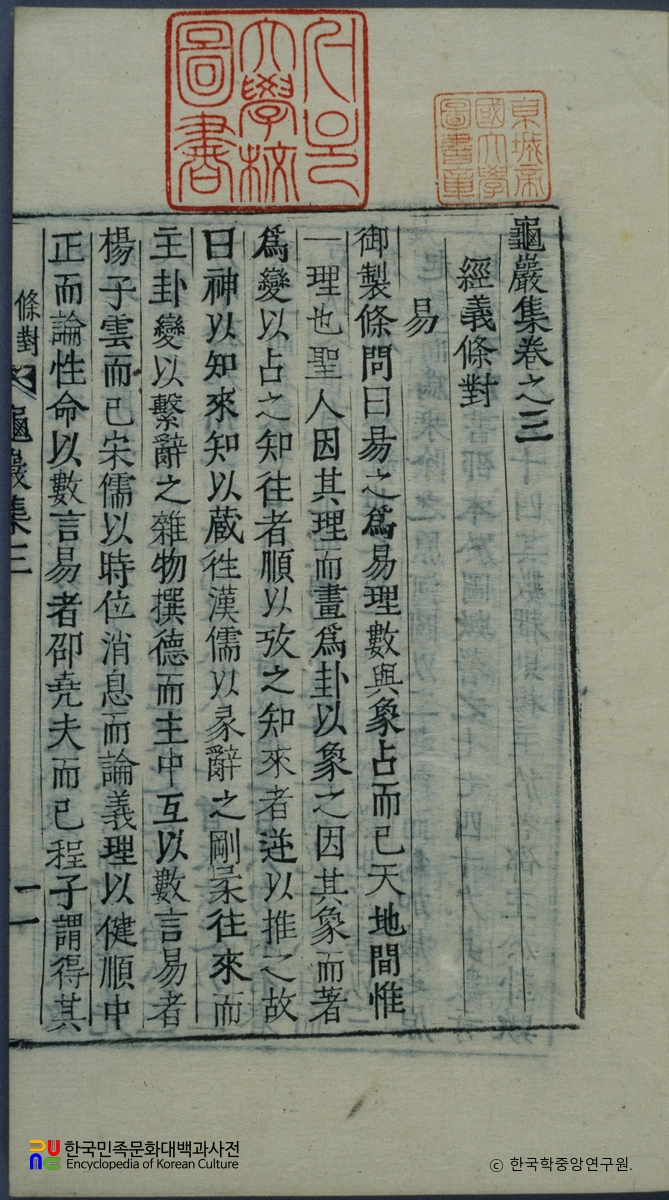 龜巖集卷之三
經義條對
易
御製條問曰易之爲易理數與象占而已天地間惟
一理也聖人因其理而畫爲卦以象之因其象而著
爲變以占之知往者順以攷之知來者逆以推之故
曰神以知來知以蔵徃漢儒以彖辭之剛柔往來而
主卦變以繫辭之雜物撰德而主中互以數言易者
楊子雲而已宋儒以時位消息而論義理以健順中
正而論性命以數言易者邵堯夫而已程子謂得其
條對
龜巖集三
一
京城帝
國大學
圖書章
大學校
圖書
한국민족문화대백과사전
Encyclopedia of Korean Culture
© 한국학중앙연구원.